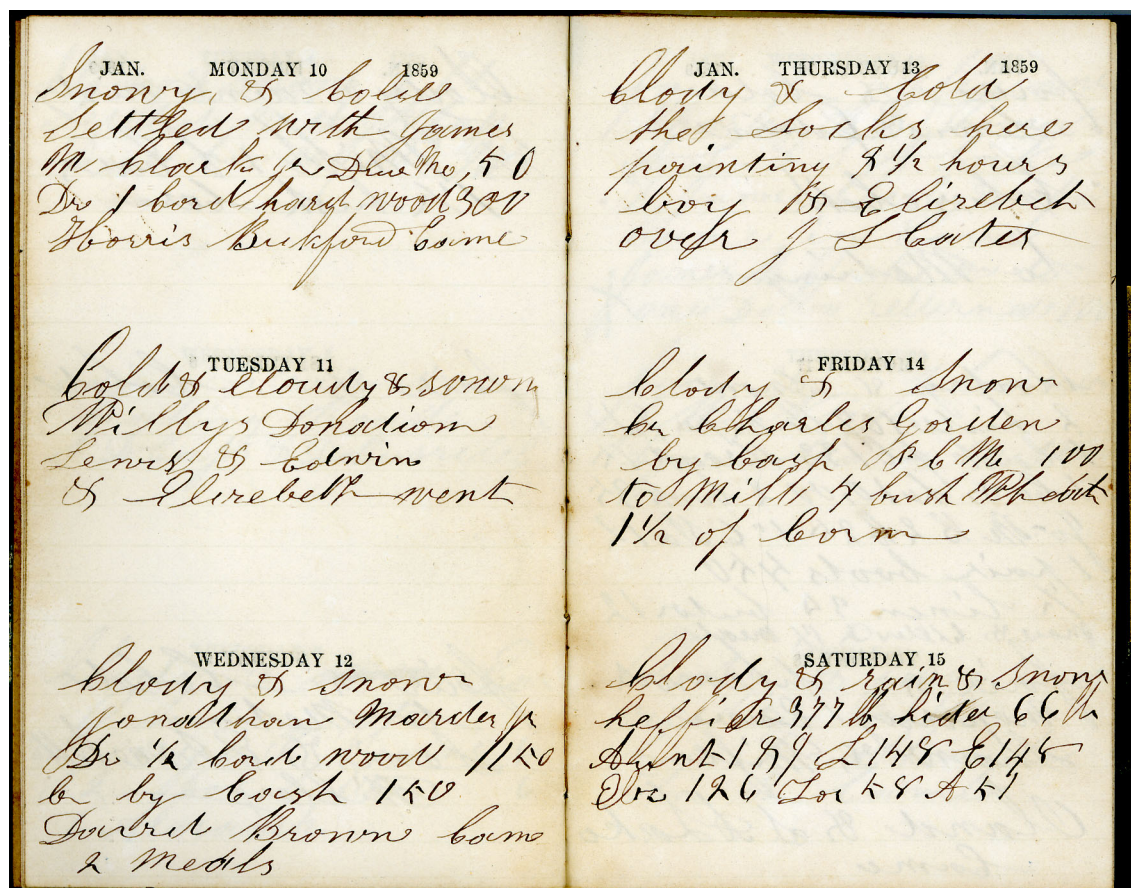 JAN. MONDAY 10 1859
Snowy & Cold
Settled with James
M Clark Jr Due Me, 50
Dr 1 Cord hard wood 300
Horris Buckford Came
TUESDAY 11
Cold & Cloudy & snow
Willys Donation
Lewis & Edwin
& Elizebeth went
WEDNESDAY 12
Clody & Snow
Jonathan Marden Jr
Dr 1/2 Cord wood 1150
Cr by Cash 150
Brown Came
2 Meals
JAN. THURSDAY 13 1859
Clody & Cold
the Socks here
painting 8 1/2 hours
boy & Elizebeth
over J S Cates
FRIDAY 14
Clody & Snow
Cr Charles Gorden
by Cash P C Me 100
to Mill 4 bush Wheat
1 1/2 of Corn
SATURDAY 15
Clody & rain & Snow
heffier 377 lb hide 66 lb
Aunt 189 L 148 E 148
126 58 A 51